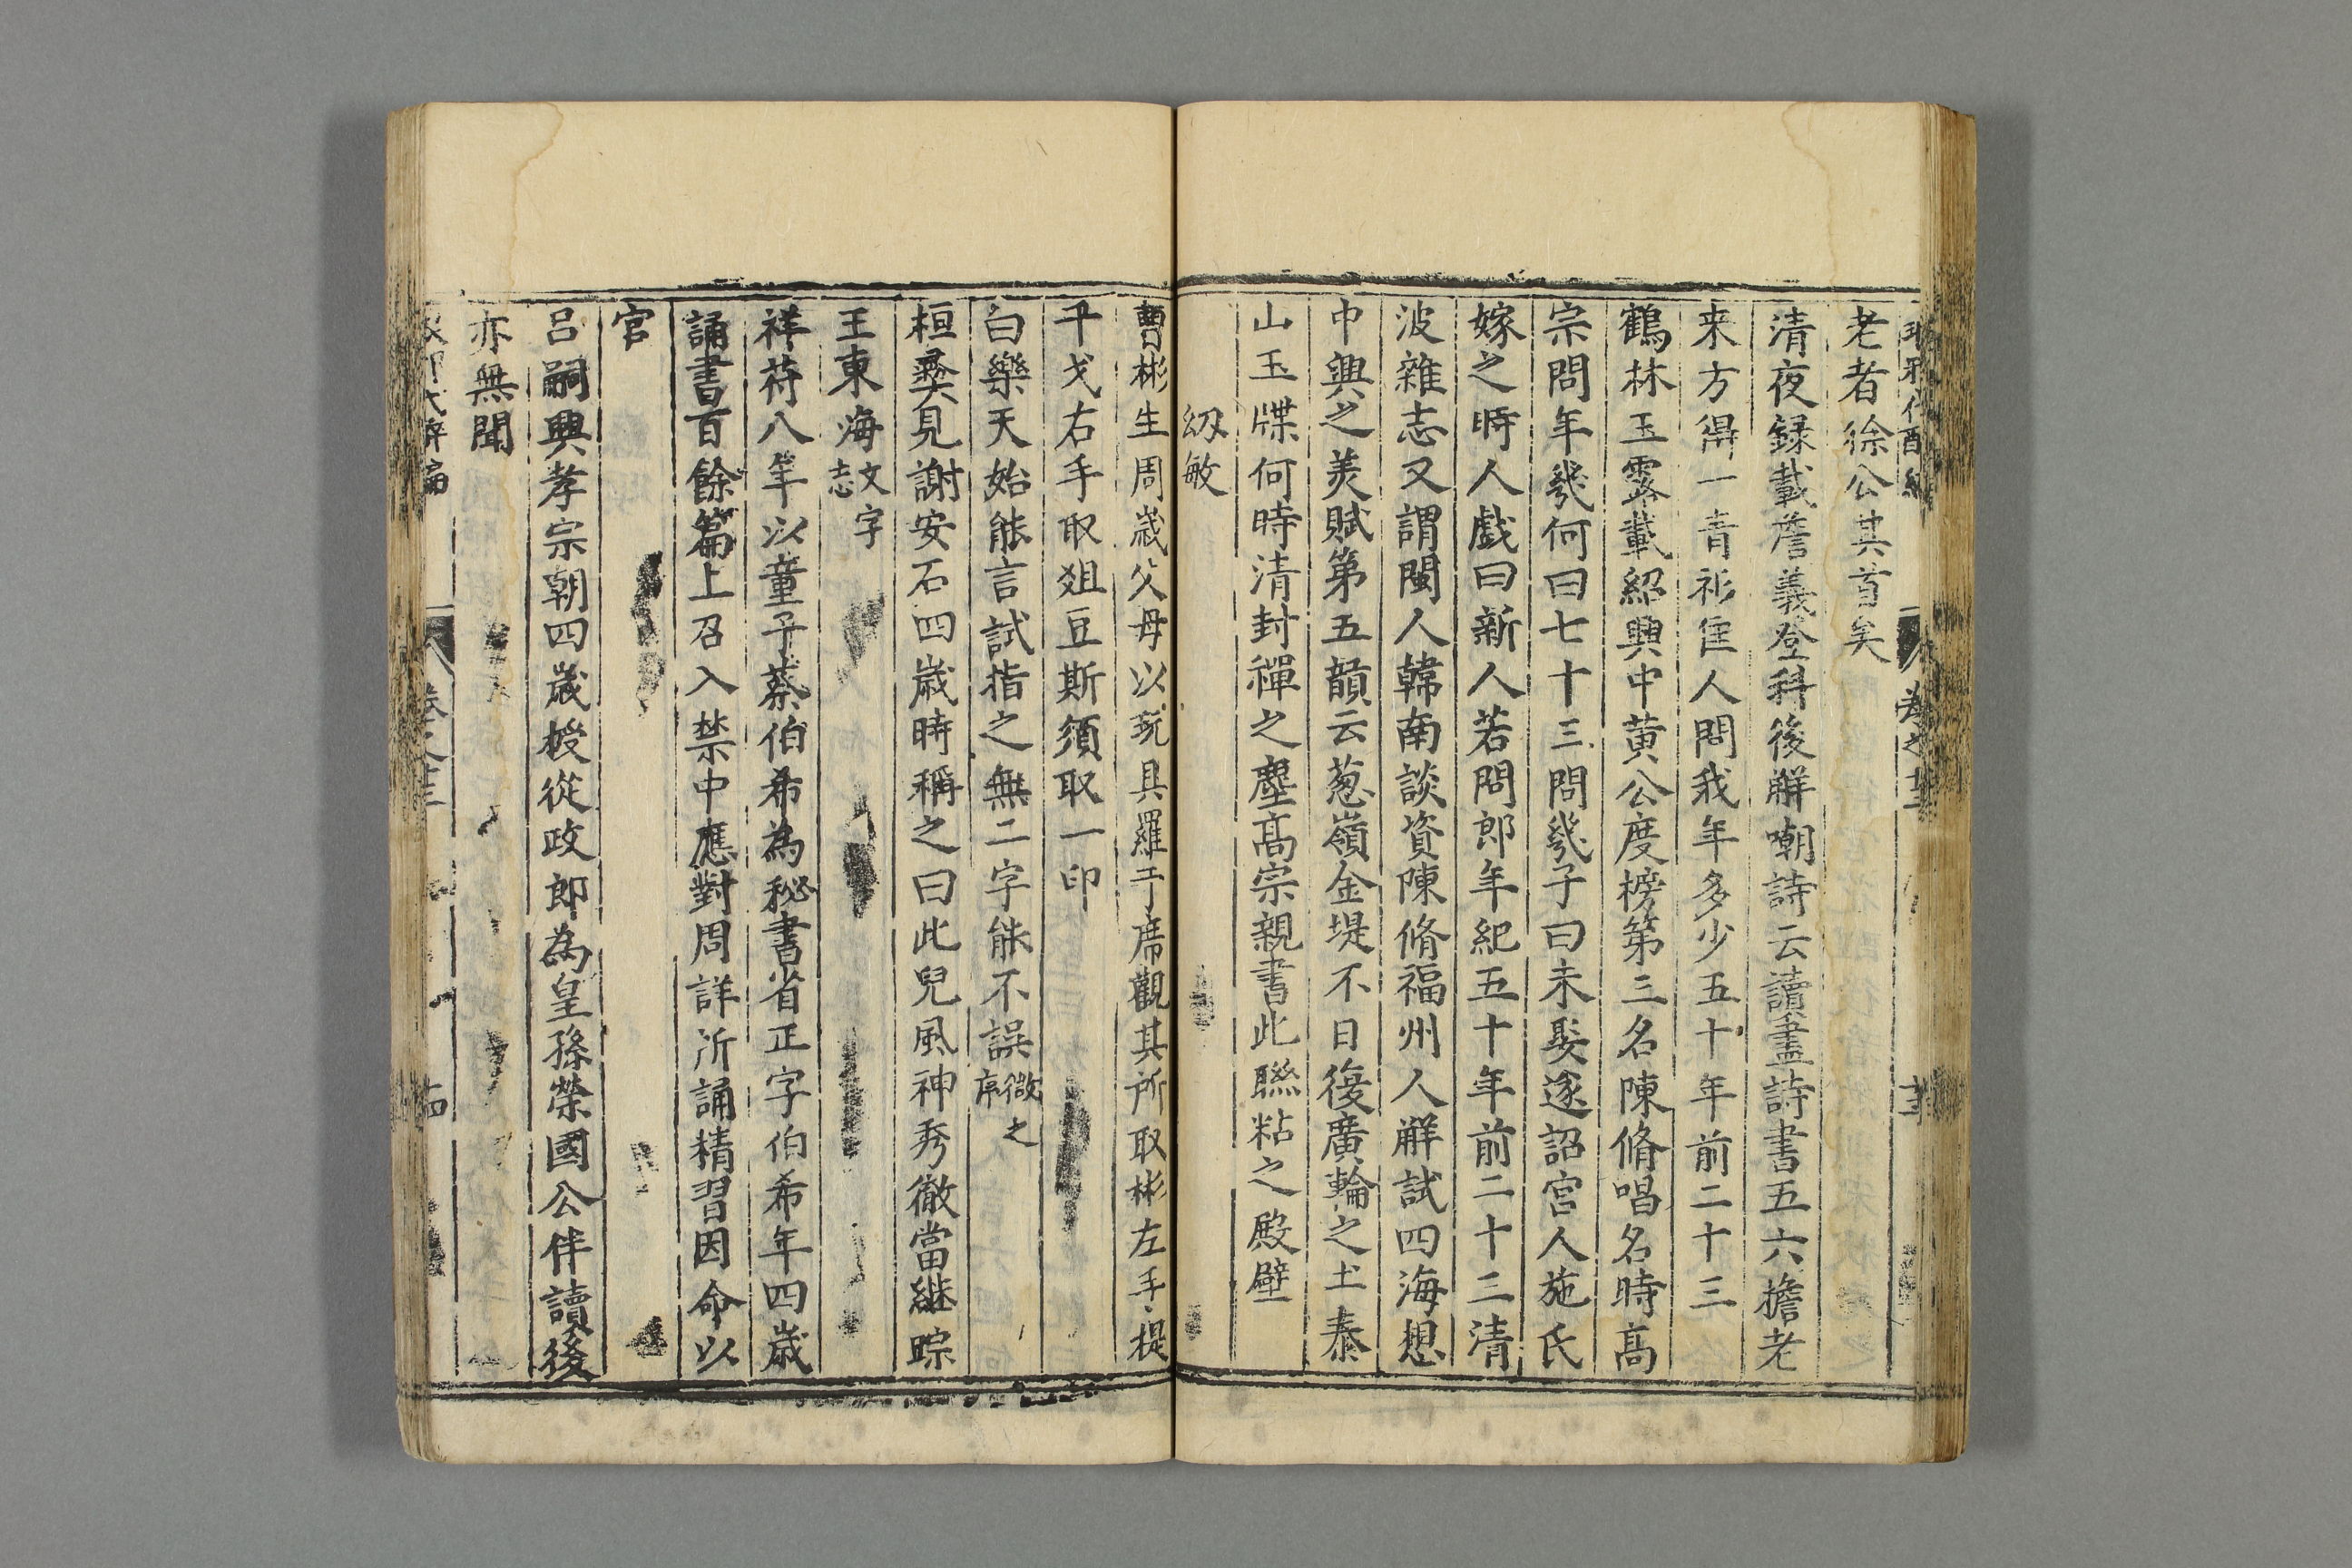 老者徐公其首矣
清夜録載詹義登科後觧嘲詩云讀盡詩書五六擔老
来方得一青衫佳人問我年多少五十年前二十三
鶴林玉露載紹興中黄公度榜第三名陳脩唱名時髙
宗問年幾何曰七十三問幾子曰未娶遂詔宫人施氏
嫁之時人戱曰新人若問郎年紀五十年前二十三清
波雜志又謂閩人韓南談資陳脩福州人觧試四海想
中興之美賦第五韻云葱嶺金堤不日復廣輪之土泰
山玉牒何時清封禪之塵髙宗親書此聮粘之殿壁
㓜敏
曹彬生周歳父毋以玩具羅于席觀其所取彬左手提
干戈右手取爼豆斯須取一印
白樂天始能言試指之無二字能不誤微之序
桓彞見謝安石四歳時稱之曰此兒風神秀徹當継踪
王東海文字志
祥符八年以童子蔡伯希為秘書省正字伯希年四歳
誦書百餘篇上召入禁中應對周詳所誦精習因命以
官
吕嗣興孝宗朝四歳授從政郎為皇孫榮國公伴讀後
亦無聞